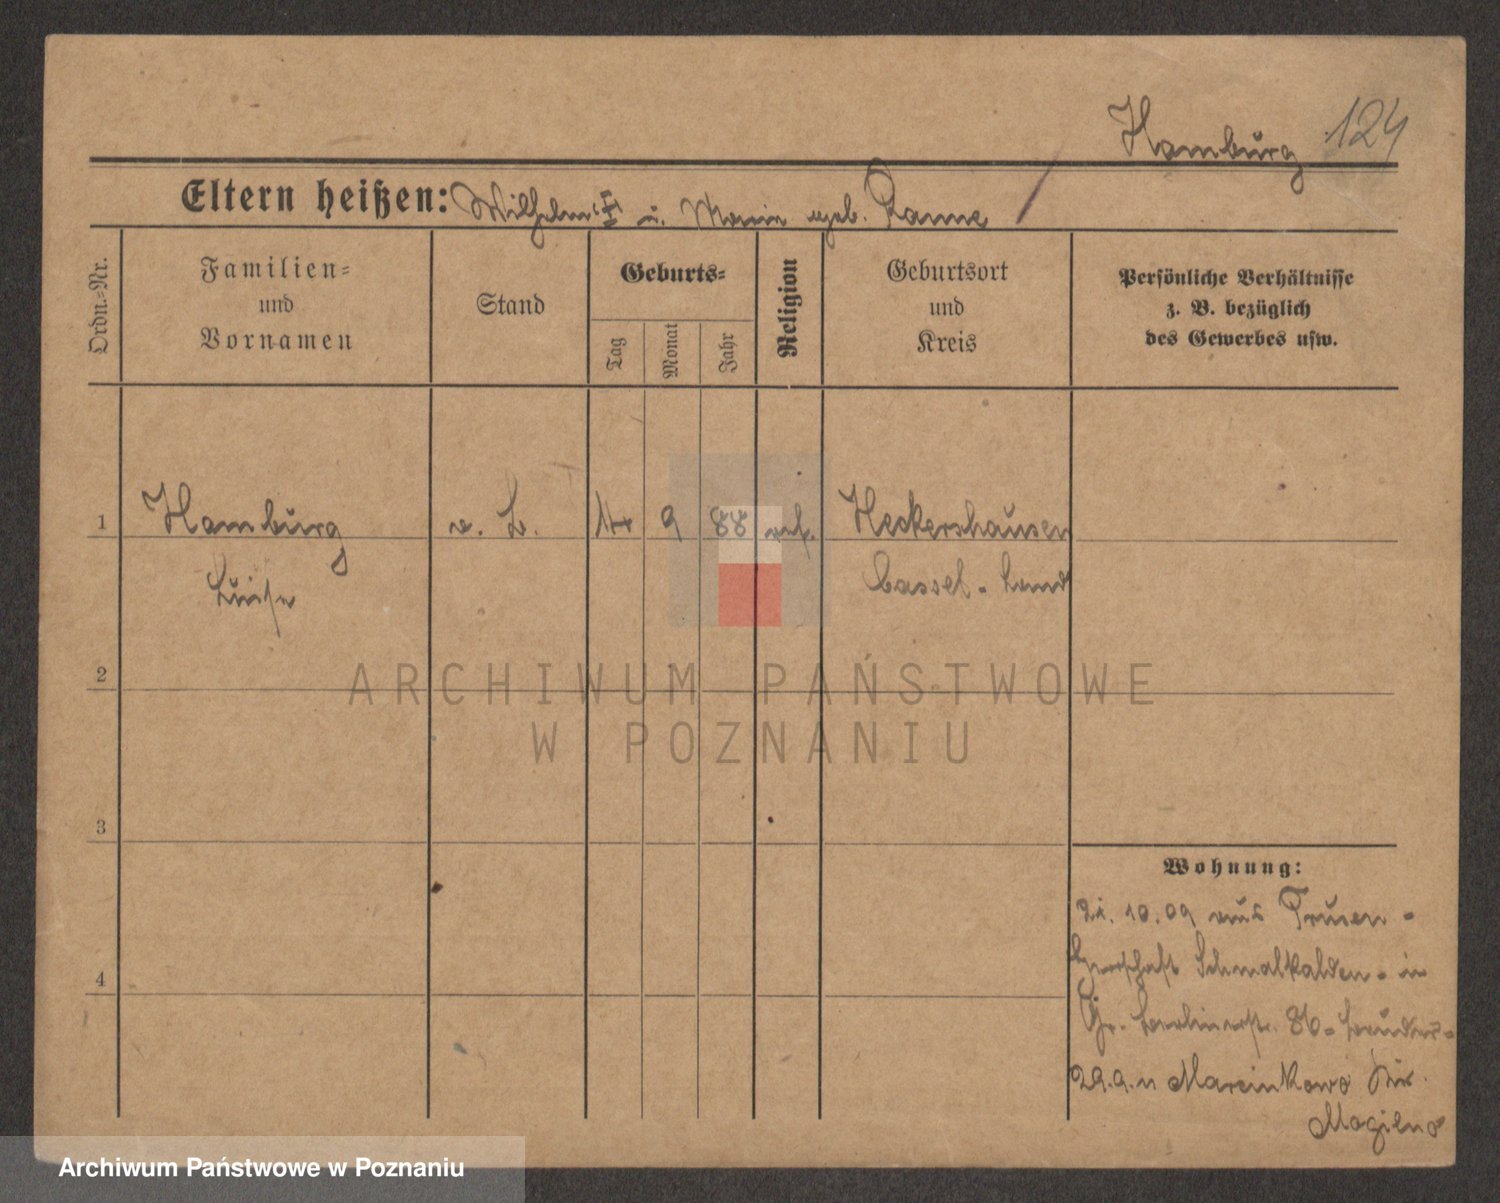 Hamburg 124
Eltern heißen: Wilhelm III u. Marie geb. Ramme
Ordn.-Nr.
Familien-
und
Vornamen
Stand
Geburts-
Tag
Monat
Jahr
Religion
Geburtsort
und
Kreis
Persönliche Verhältnisse
z. B. bezüglich
des Gewerbes usw.
1 Hamburg o. B. 14 9 88 ref. Heckershausen
Luise Cassel-Land
2
3
4
Wohnung:
21. 10. 09 aus Trusen-
Herrschaft Schmalkalden - in
Gr. Berlinerstr. 86 -
29.9.11 Marcinkowo
Mogilno
ARCHIWUM PAŃSTWOWE
W POZNANIU
Archiwum Państwowe w Poznaniu